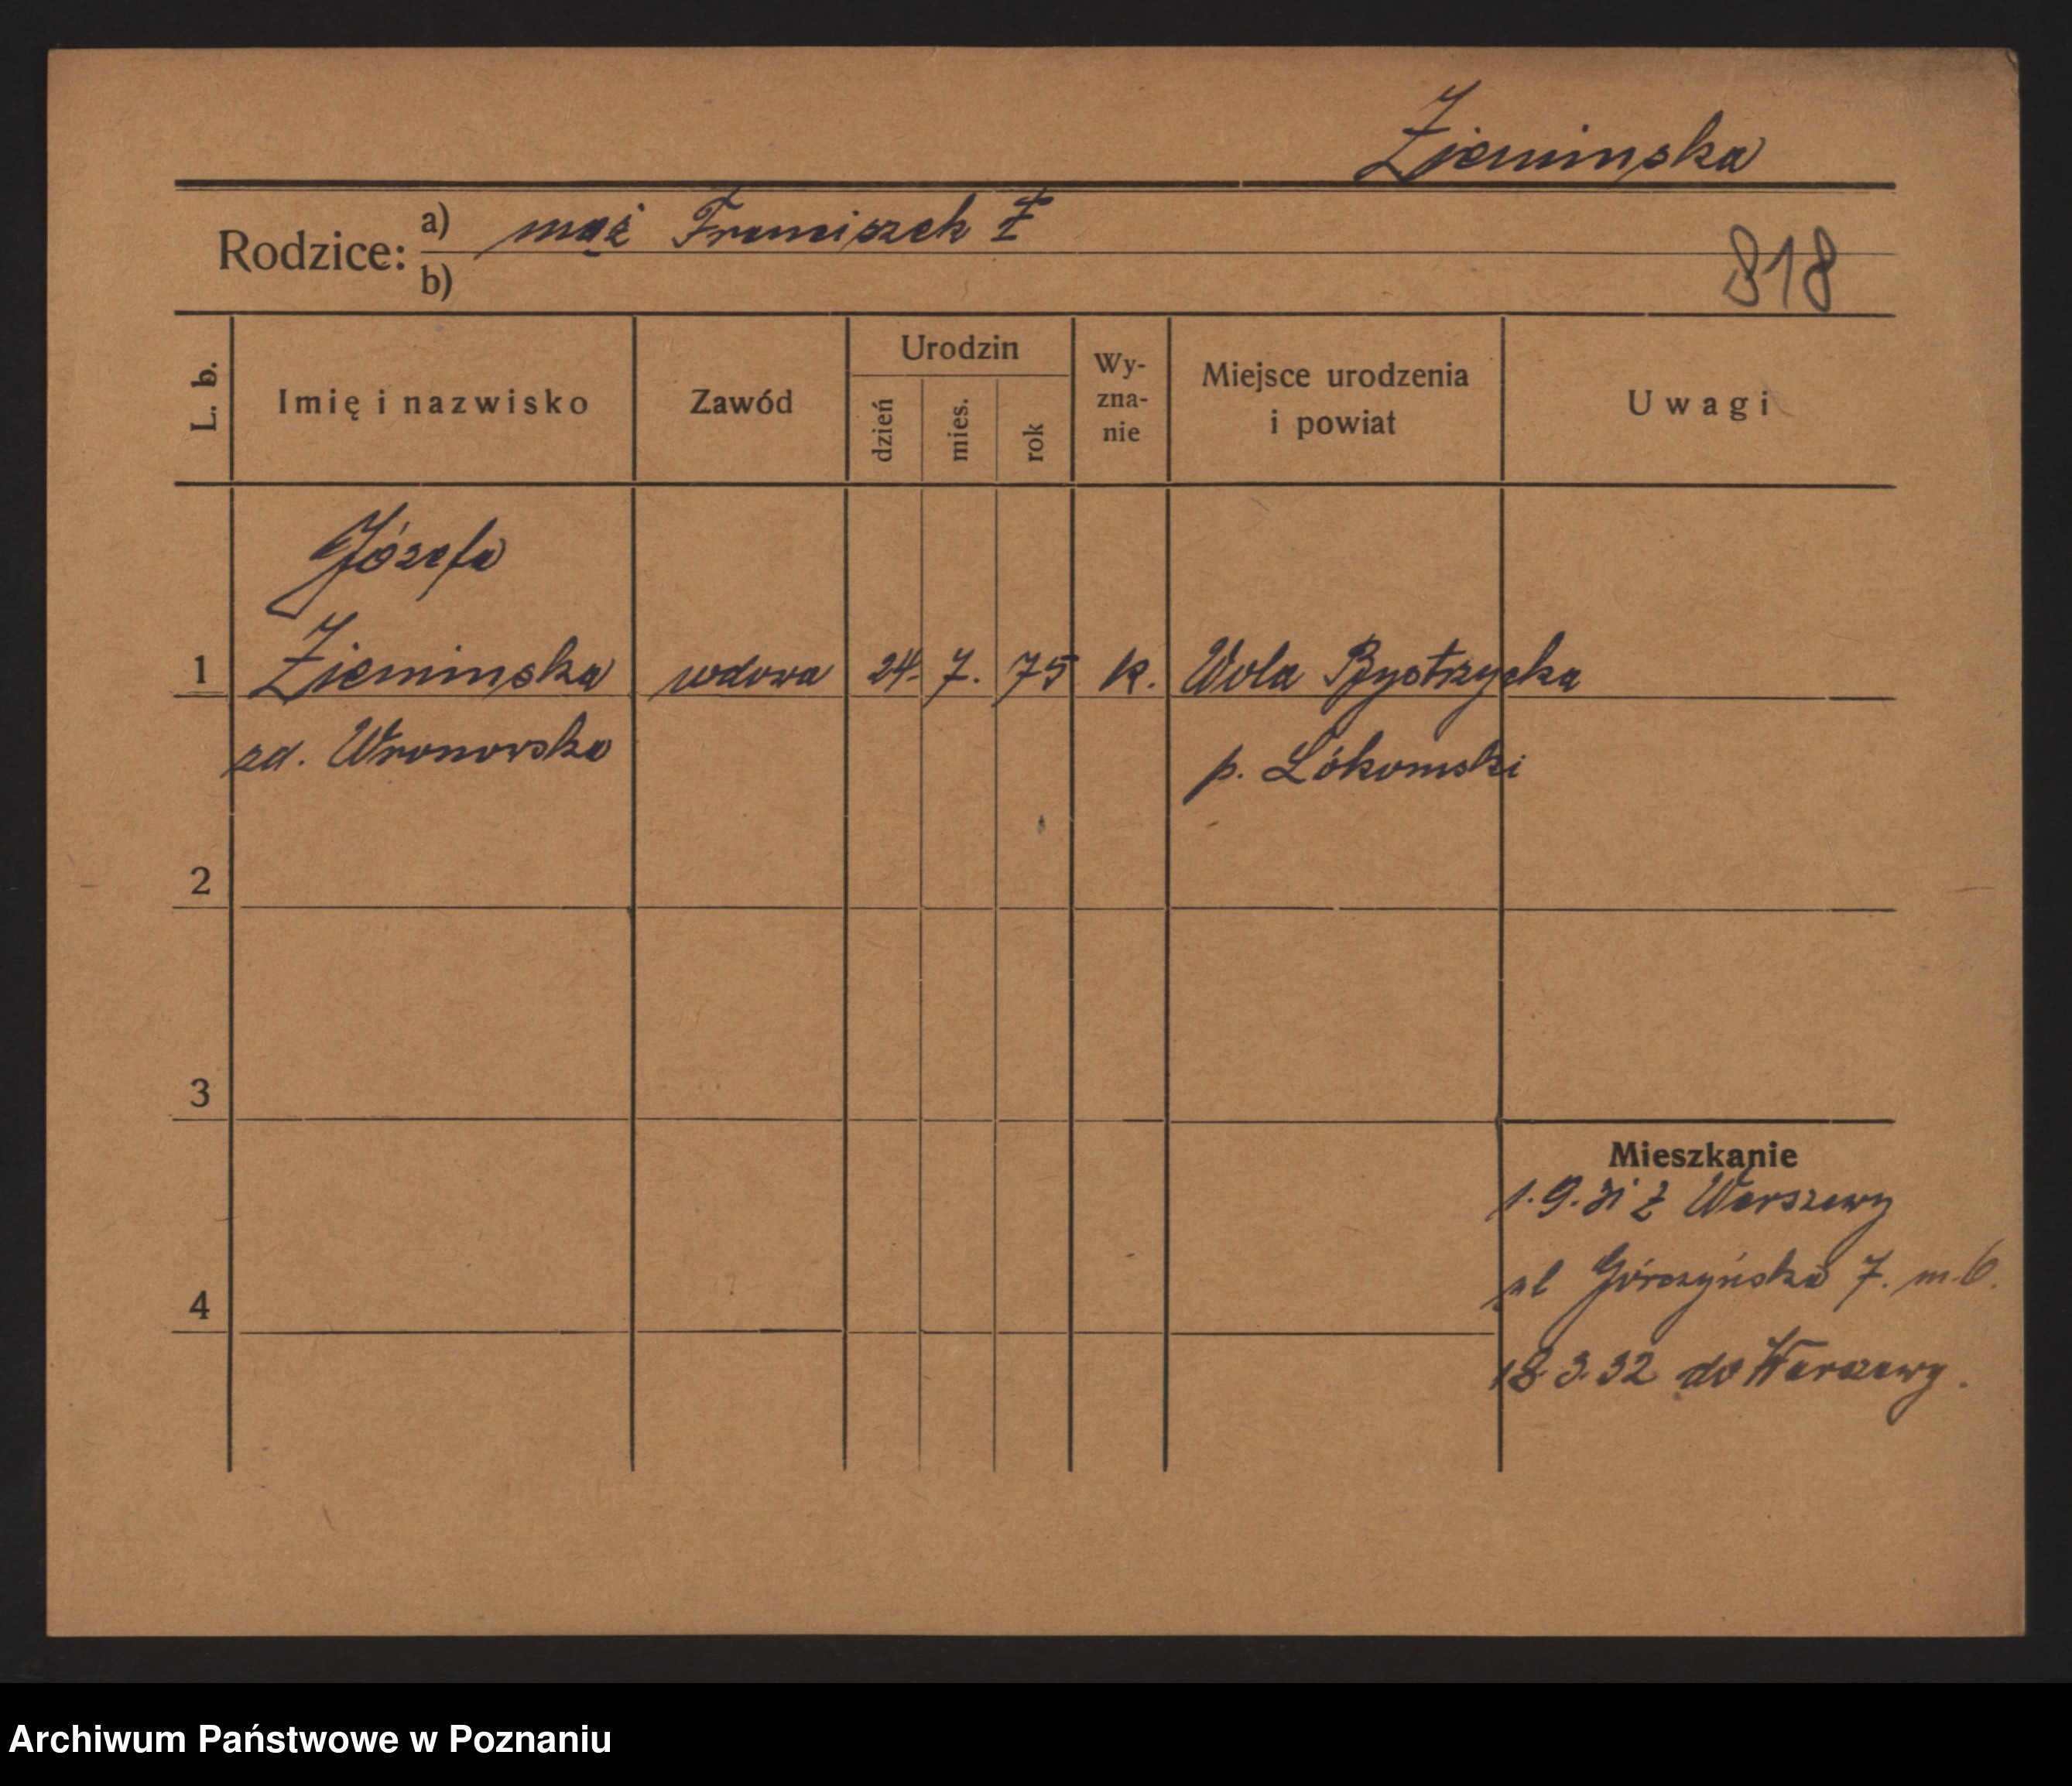 Zieminska
Rodzice: a) mąż Franciszek Z
b)
818
L. b.
Imię i nazwisko
Zawód
Urodzin
dzień
mies.
rok
Wy-
zna-
nie
Miejsce urodzenia
i powiat
Uwagi
Józefa
1 Zieminska wdowa 24. 7. 75 k. Wola Bystrzycka
zd. Wronowska p. Lókomski
2
3
4
Mieszkanie
1.9.31 z Warszawy
ul Górczyńska 7. m. 6.
18.3.32 do Warszawy.
Archiwum Państwowe w Poznaniu